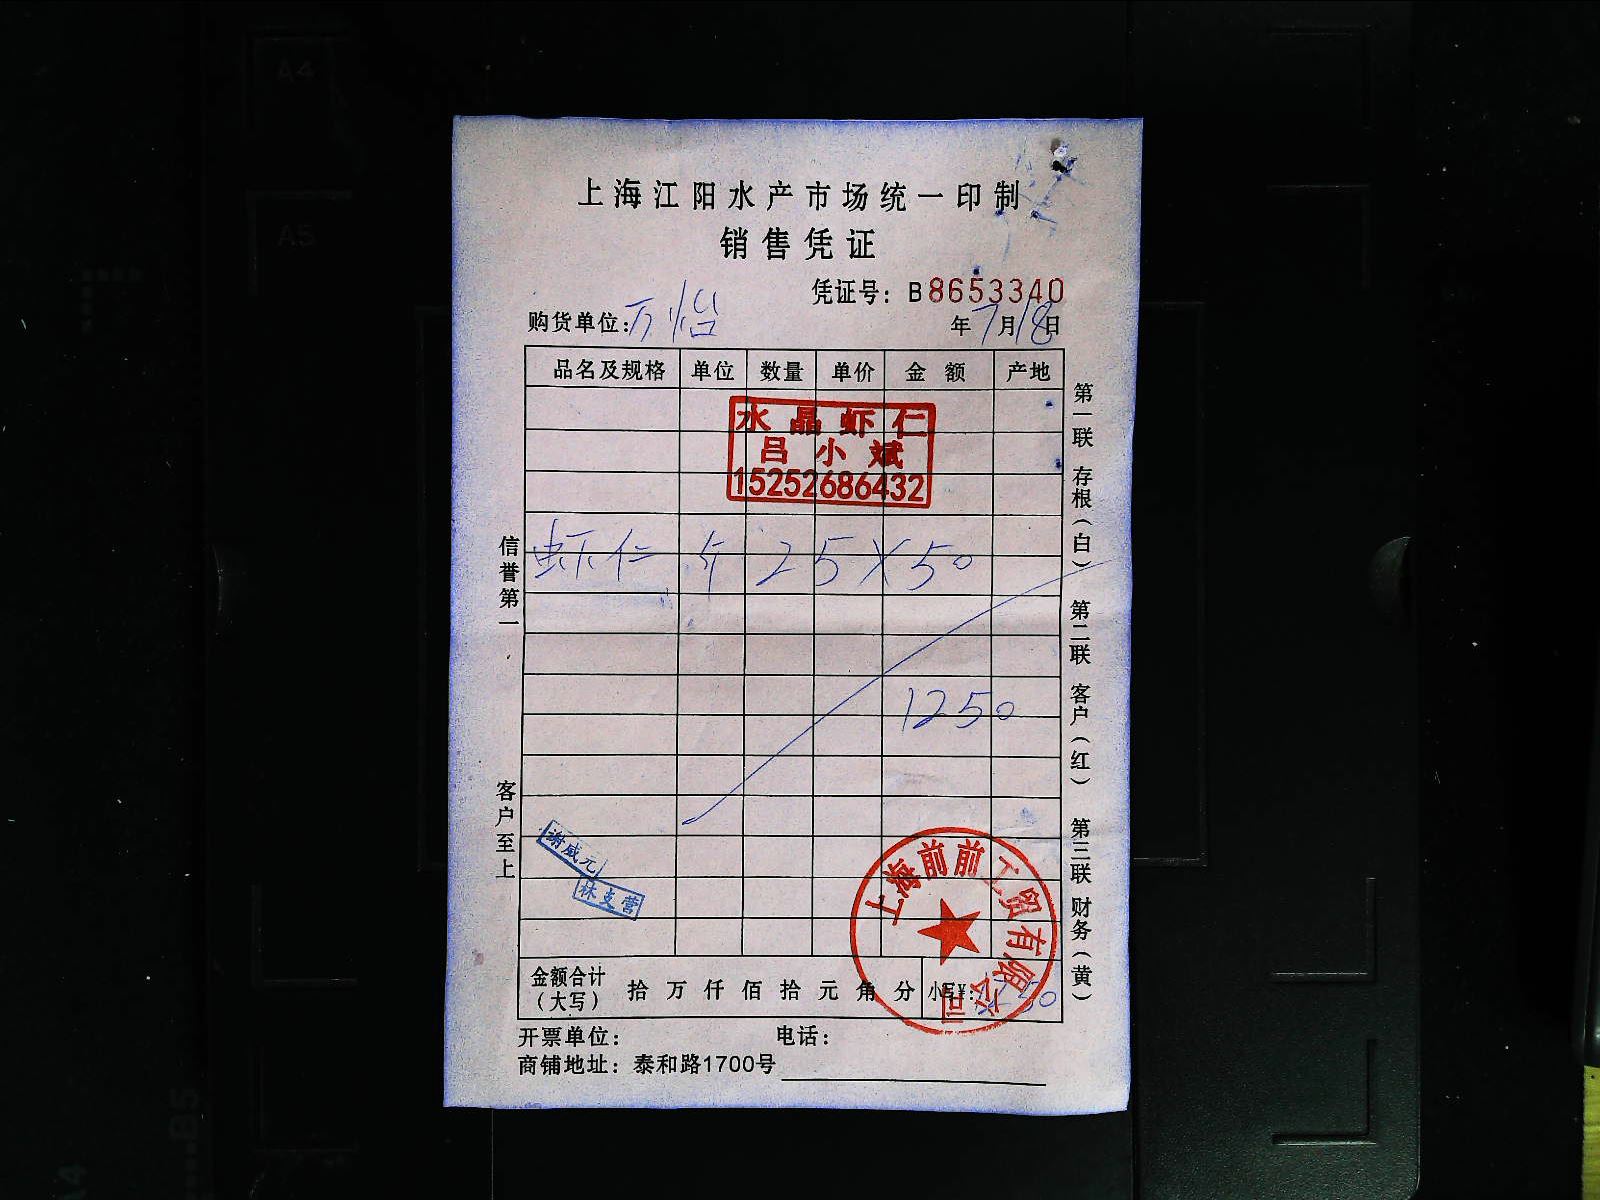 上海江阳水产市场统一印制
销售凭证
凭证号：B8653340
购货单位：万怡 年7月18日
品名及规格 单位 数量 单价 金额 产地
水晶虾仁
吕小斌
15252686432
虾仁 斤 25×50
1250
信誉第一 客户至上
第一联 存根（白） 第二联 客户（红） 第三联 财务（黄）
谢威元
林支营
上海前前工贸有限公司
金额合计（大写） 拾万仟佰拾元角分 小写¥：1250
开票单位： 电话：
商铺地址：泰和路1700号
A4
A5
B5
A4